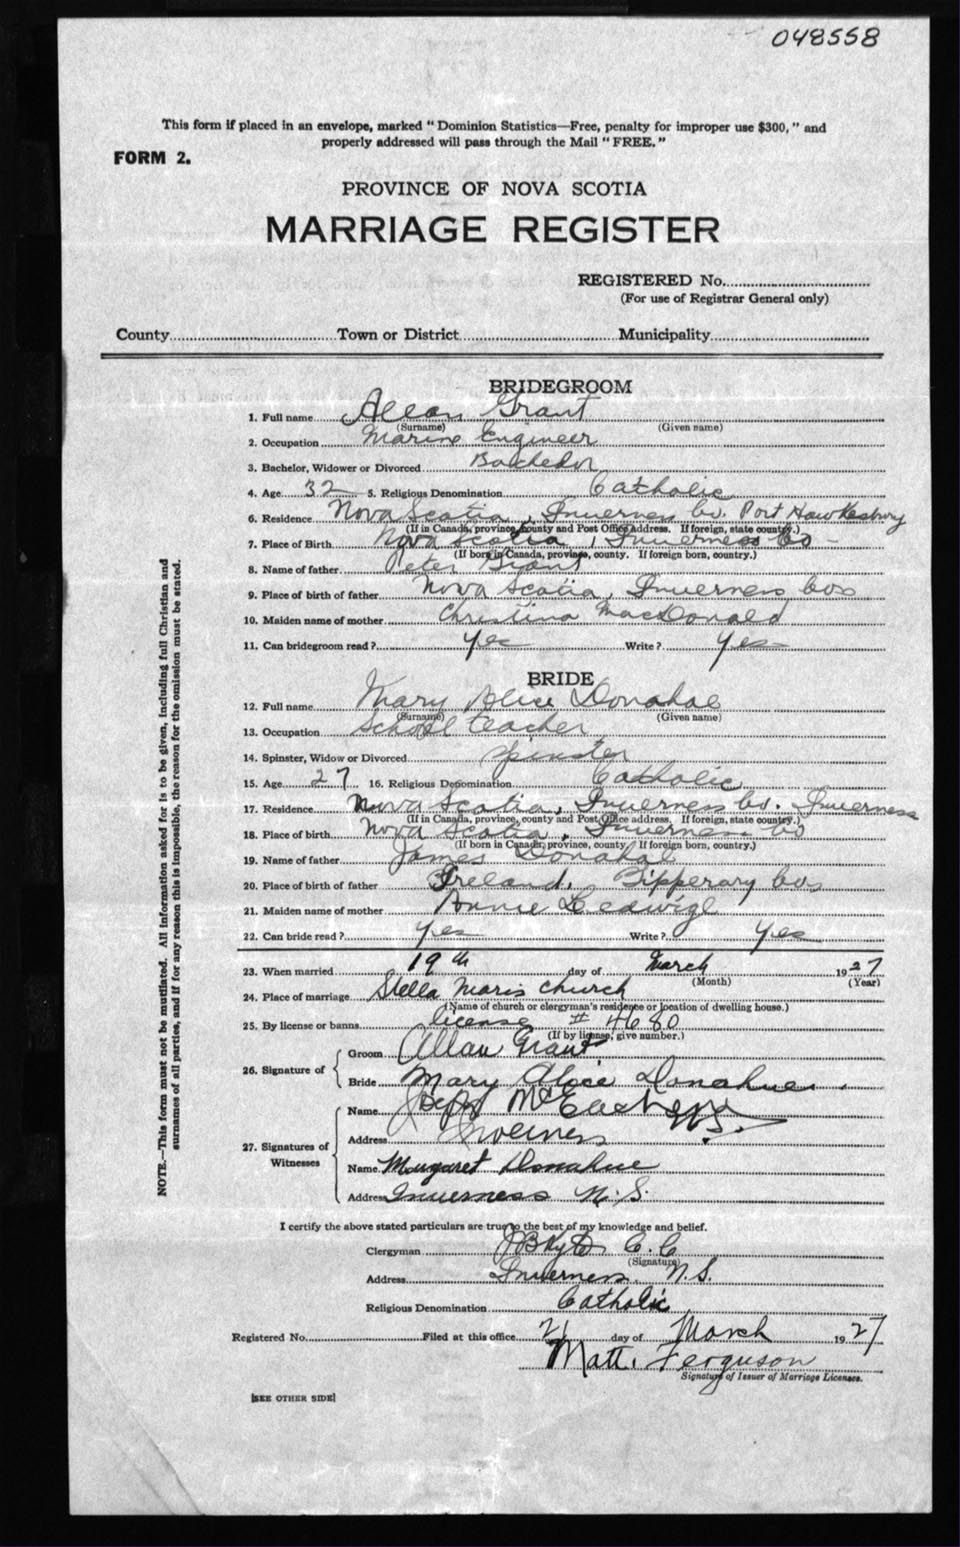 048558
This form if placed in an envelope, marked "Dominion Statistics—Free, penalty for improper use $300," and
properly addressed will pass through the Mail "FREE."
FORM 2.
PROVINCE OF NOVA SCOTIA
MARRIAGE REGISTER
REGISTERED No.
(For use of Registrar General only)
County Town or District Municipality
BRIDEGROOM
1. Full name Allan Grant
(Surname) (Given name)
2. Occupation Marine Engineer
3. Bachelor, Widower or Divorced Bachelor
4. Age 32 5. Religious Denomination Catholic
6. Residence Nova Scotia, Inverness Co. Port Hawkesbury
(If in Canada, province, county and Post Office address. If foreign, state country.)
7. Place of Birth Nova Scotia, Inverness Co -
(If born in Canada, province, county. If foreign born, country.)
8. Name of father Peter Grant
9. Place of birth of father Nova Scotia, Inverness Cos
10. Maiden name of mother Christina MacDonald
11. Can bridegroom read? Yes Write? Yes
BRIDE
12. Full name Mary Alice Donahoe
(Surname) (Given name)
13. Occupation School teacher
14. Spinster, Widow or Divorced Spinster
15. Age 27 16. Religious Denomination Catholic
17. Residence Nova Scotia, Inverness Co. Inverness
(If in Canada, province, county and Post Office address. If foreign, state country.)
18. Place of birth Nova Scotia, Inverness Co
(If born in Canada, province, county. If foreign born, country.)
19. Name of father James
20. Place of birth of father Ireland, Tipperary Cos
21. Maiden name of mother Annie
22. Can bride read? Yes Write? Yes
23. When married 19th day of March 1927
(Month) (Year)
24. Place of marriage Stella Maris Church
(Name of church or clergyman's residence or location of dwelling house.)
25. By license or banns license # 4680
(If by license, give number.)
26. Signature of Groom Allan Grant
Bride Mary Alice Donahue.
27. Signatures of Witnesses
Name N.S.
Address Inverness
Name Margaret Donahue
Address Inverness N.S.
I certify the above stated particulars are true to the best of my knowledge and belief.
Clergyman C.C
(Signature)
Address Inverness, N.S.
Religious Denomination Catholic
Registered No. Filed at this office 21 day of March 1927
Matt. Ferguson
Signature of Issuer of Marriage Licenses.
[SEE OTHER SIDE]
NOTE.—This form must not be mutilated. All information asked for is to be given, including full Christian and
surnames of all parties, and if for any reason this is impossible, the reason for the omission must be stated.